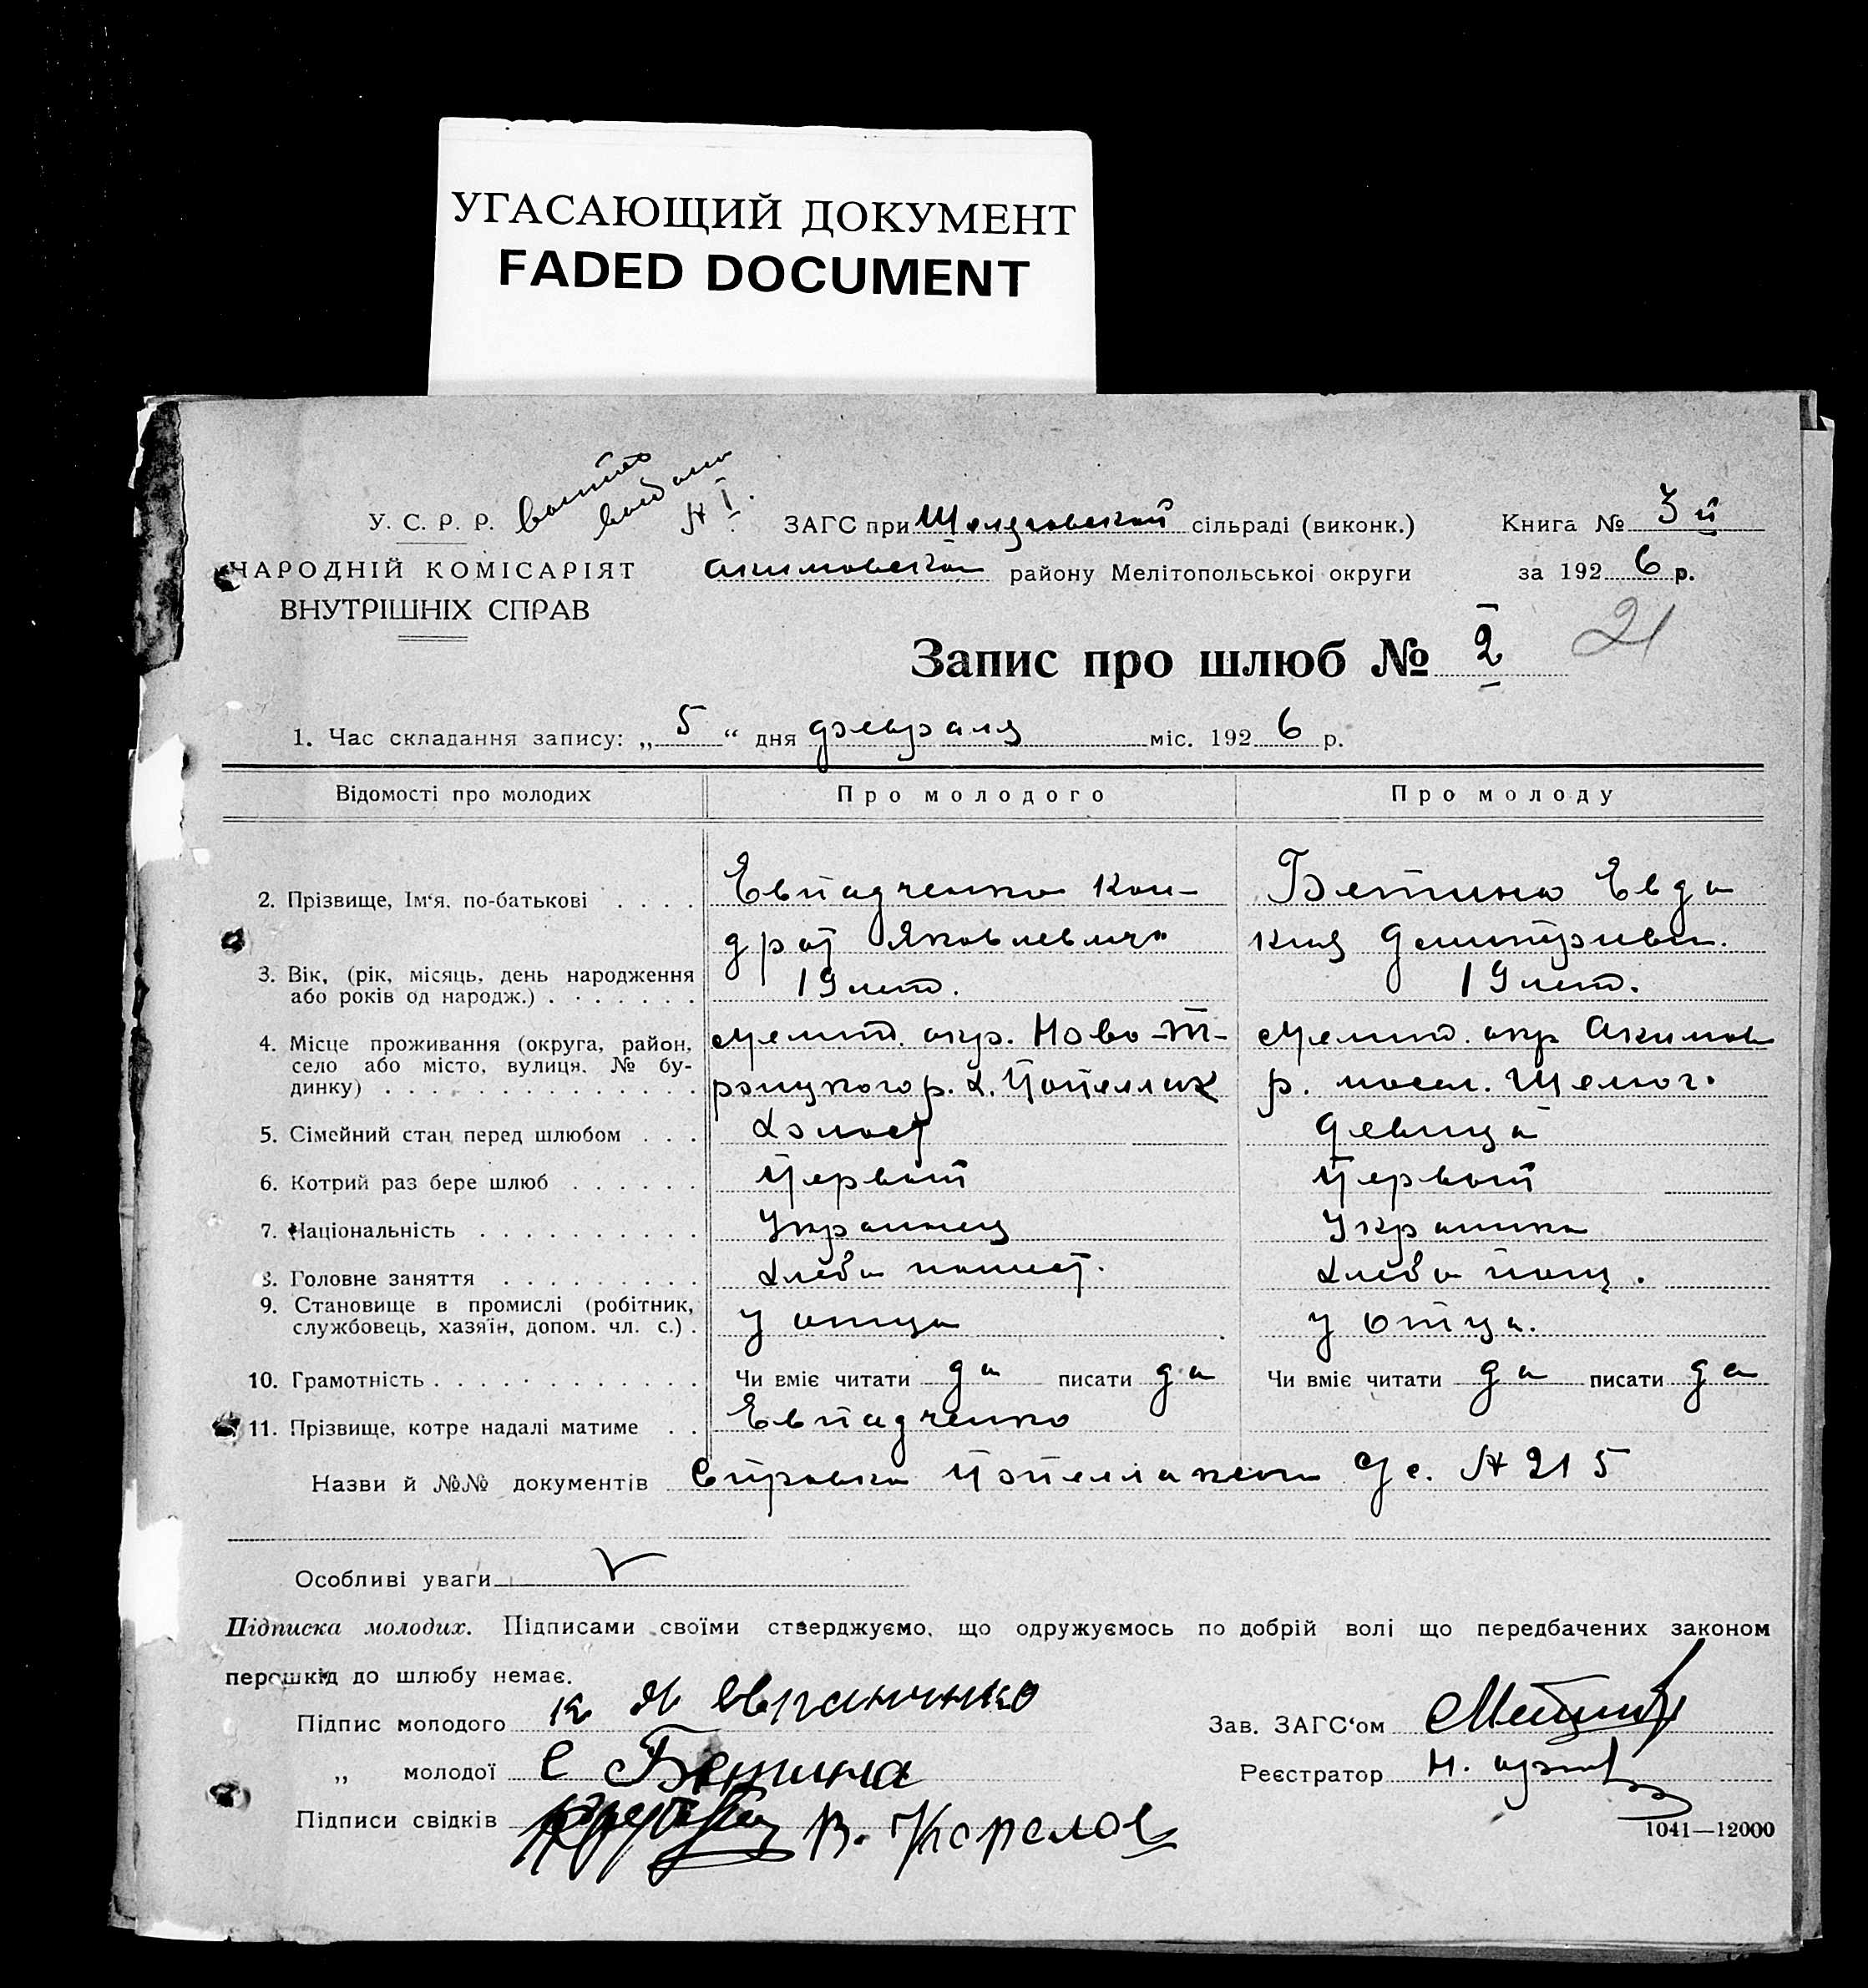 УГАСАЮЩИЙ ДОКУМЕНТ
FADED DOCUMENT
У. С. Р. Р.
НАРОДНІЙ КОМІСАРІЯТ
ВНУТРІШНІХ СПРАВ
ЗАГС при сільраді (виконк.)
Акимовской району Мелітопольської округи
Книга № 3й
за 1926 р.
Запис про шлюб № 2 21
1. Час складання запису: „5“ дня февраля міс. 1926 р.
Відомості про молодих Про молодого Про молоду
2. Прізвище, Ім‘я, по-батькові . . . . Евпадченко Кон- Бетина Евдо
драт Яковлевич кия
3. Вік, (рік, місяць, день народження
або років од народж.) . . . . . . . 19 лет. 19 лет.
4. Місце проживання (округа, район, Мелит. окр. Ново-Т- Мелит. окр Акимов
село або місто, вулиця, № бу-
динку) . . . . . . . . . . . . . . роицкого р. р. посел.
5. Сімейний стан перед шлюбом . . . Холост Девица
6. Котрий раз бере шлюб . . . . . . Первый Первый
7. Національність . . . . . . . . . . Украинец Украинка
8. Головне заняття . . . . . . . . . Хлебопашест. Хлебопащ.
9. Становище в промислі (робітник,
службовець, хазяїн, допом. чл. с.) . у отца у отца.
10. Грамотність . . . . . . . . . . . . Чи вміє читати да писати да Чи вміє читати да писати да
11. Прізвище, котре надалі матиме . . Евпадченко
Назви й №№ документів Справка № 215
Особливі уваги
Підписка молодих. Підписами своїми стверджуємо, що одружуємось по добрій волі що передбачених законом
перешкід до шлюбу немає.
Підпис молодого К Я
Зав. ЗАГС‘ом
„ молодої Е Бетина
Реєстратор Н.
Підписи свідків В.
1041—12000